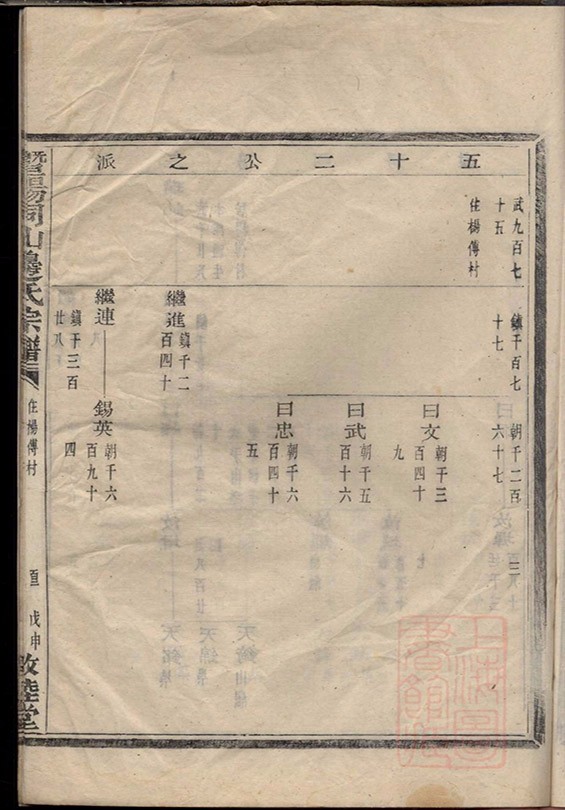 五十二公之派
武九百七
十五
住楊傅村
鎮千百七
十七
朝千二百
六十七
曰文
朝千三
百四十
九
曰武
朝千五
百十六
曰忠
朝千六
百四十
五
繼進
鎮千二
百四十
繼連
鎮千三百
廿八
錫英
朝千六
百九十
四
暨陽同山邊氏宗譜
住楊傅村
戊申
敦睦堂